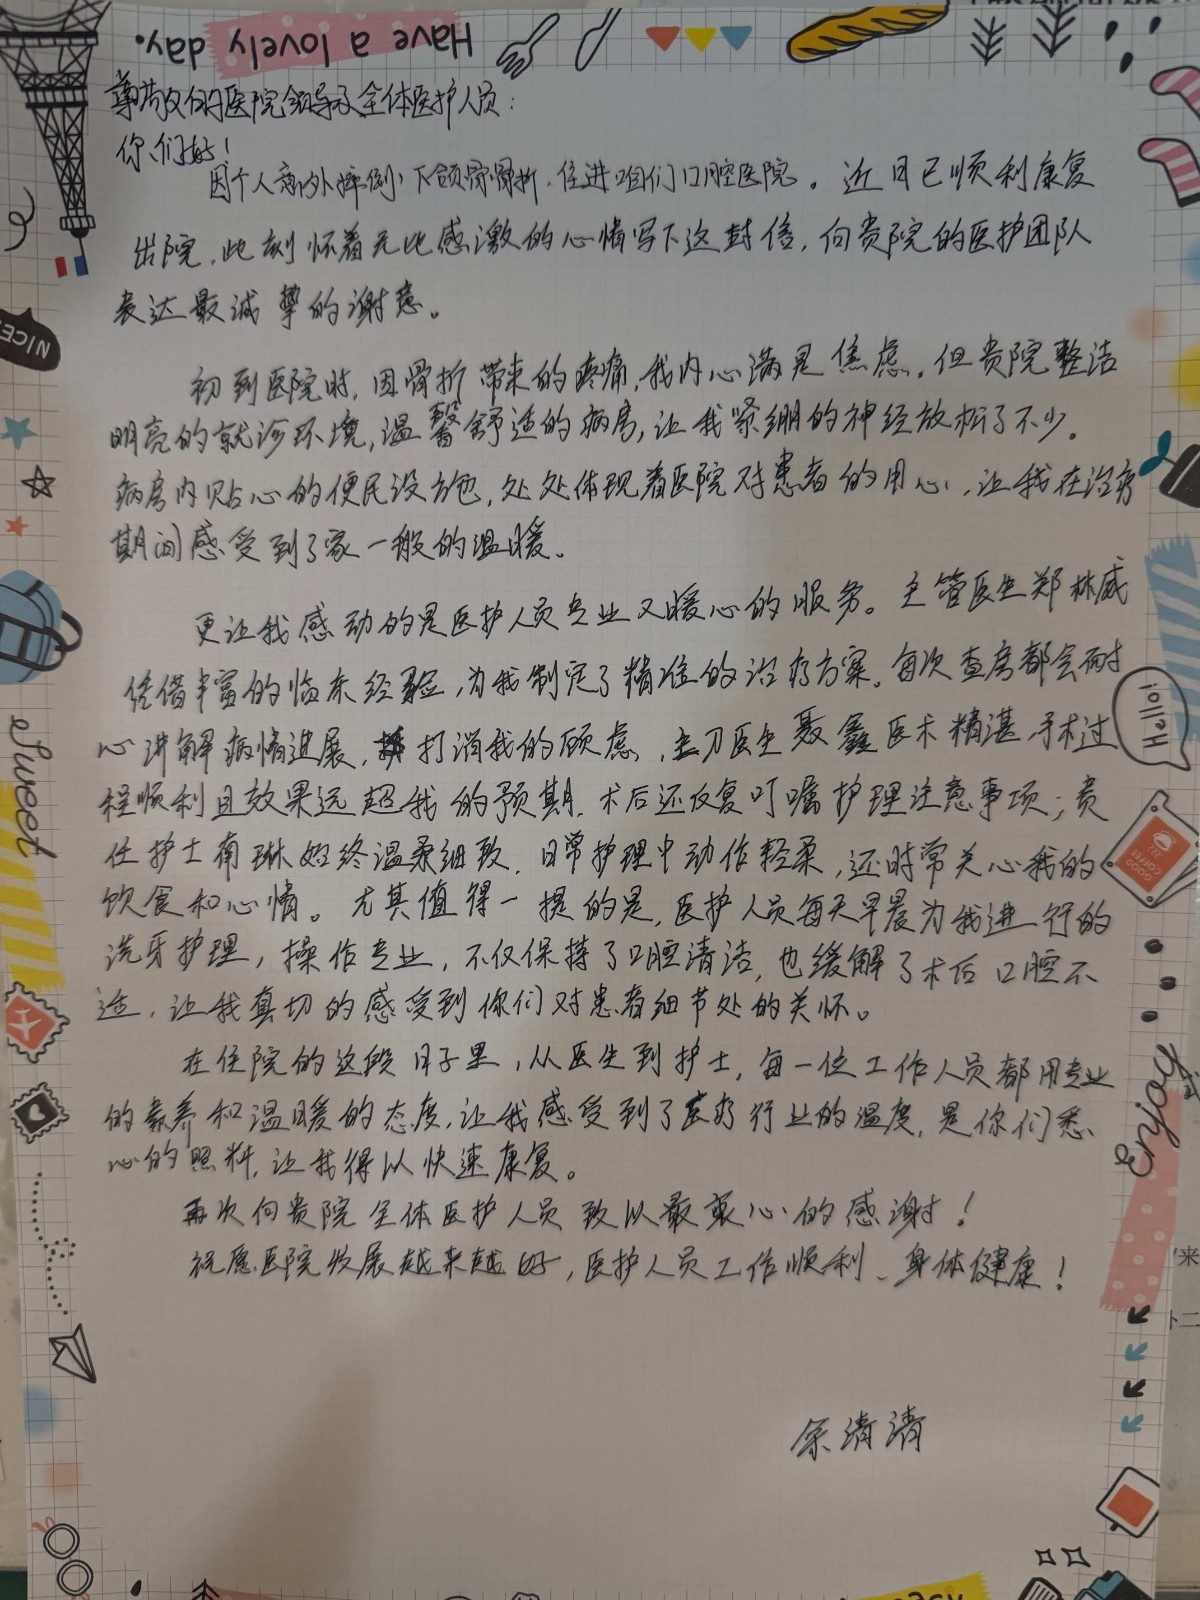 Have a lovely day.
尊敬的医院领导及全体医护人员：
你们好！
因个人意外摔倒，下颌骨骨折，住进咱们口腔医院。近日已顺利康复
出院，此刻怀着无比感激的心情写下这封信，向贵院的医护团队
表达最诚挚的谢意。
初到医院时，因骨折带来的疼痛，我内心满是焦虑。但贵院整洁
明亮的就诊环境，温馨舒适的病房，让我紧绷的神经放松了不少。
病房内贴心的便民设施，处处体现着医院对患者的用心，让我在治疗
期间感受到了家一般的温暖。
更让我感动的是医护人员专业又暖心的服务。主管医生郑林威
凭借丰富的临床经验，为我制定了精准的治疗方案。每次查房都会耐
心讲解病情进展，打消我的顾虑，主刀医生聂鑫医术精湛，手术过
程顺利且效果远超我的预期，术后还反复叮嘱护理注意事项；责
任护士南琳始终温柔细致，日常护理中动作轻柔，还时常关心我的
饮食和心情。尤其值得一提的是，医护人员每天早晨为我进行的
洗牙护理，操作专业，不仅保持了口腔清洁，也缓解了术后口腔不
适，让我真切的感受到你们对患者细节处的关怀。
在住院的这段日子里，从医生到护士，每一位工作人员都用专业
的素养和温暖的态度，让我感受到了医疗行业的温度，是你们悉
心的照料，让我得以快速康复。
再次向贵院全体医护人员致以最衷心的感谢！
祝愿医院发展越来越好，医护人员工作顺利、身体健康！
余清清
NICE
Sweet
Hello!
GOOD
COFFEE
来
卜二